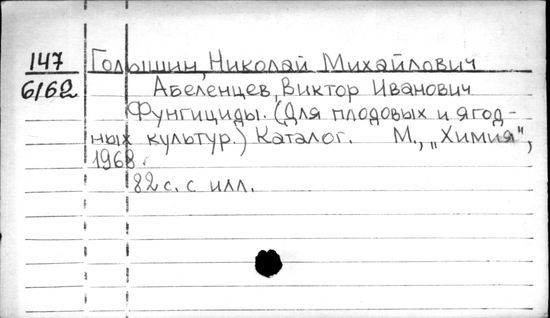 147 Голышин, Николай Михайлович
6/62 Абеленцев, Виктор Иванович
Фунгициды. (Для плодовых и ягод-
ных культур.) Каталог. М., „Химия",
1968.
82 с. с илл.